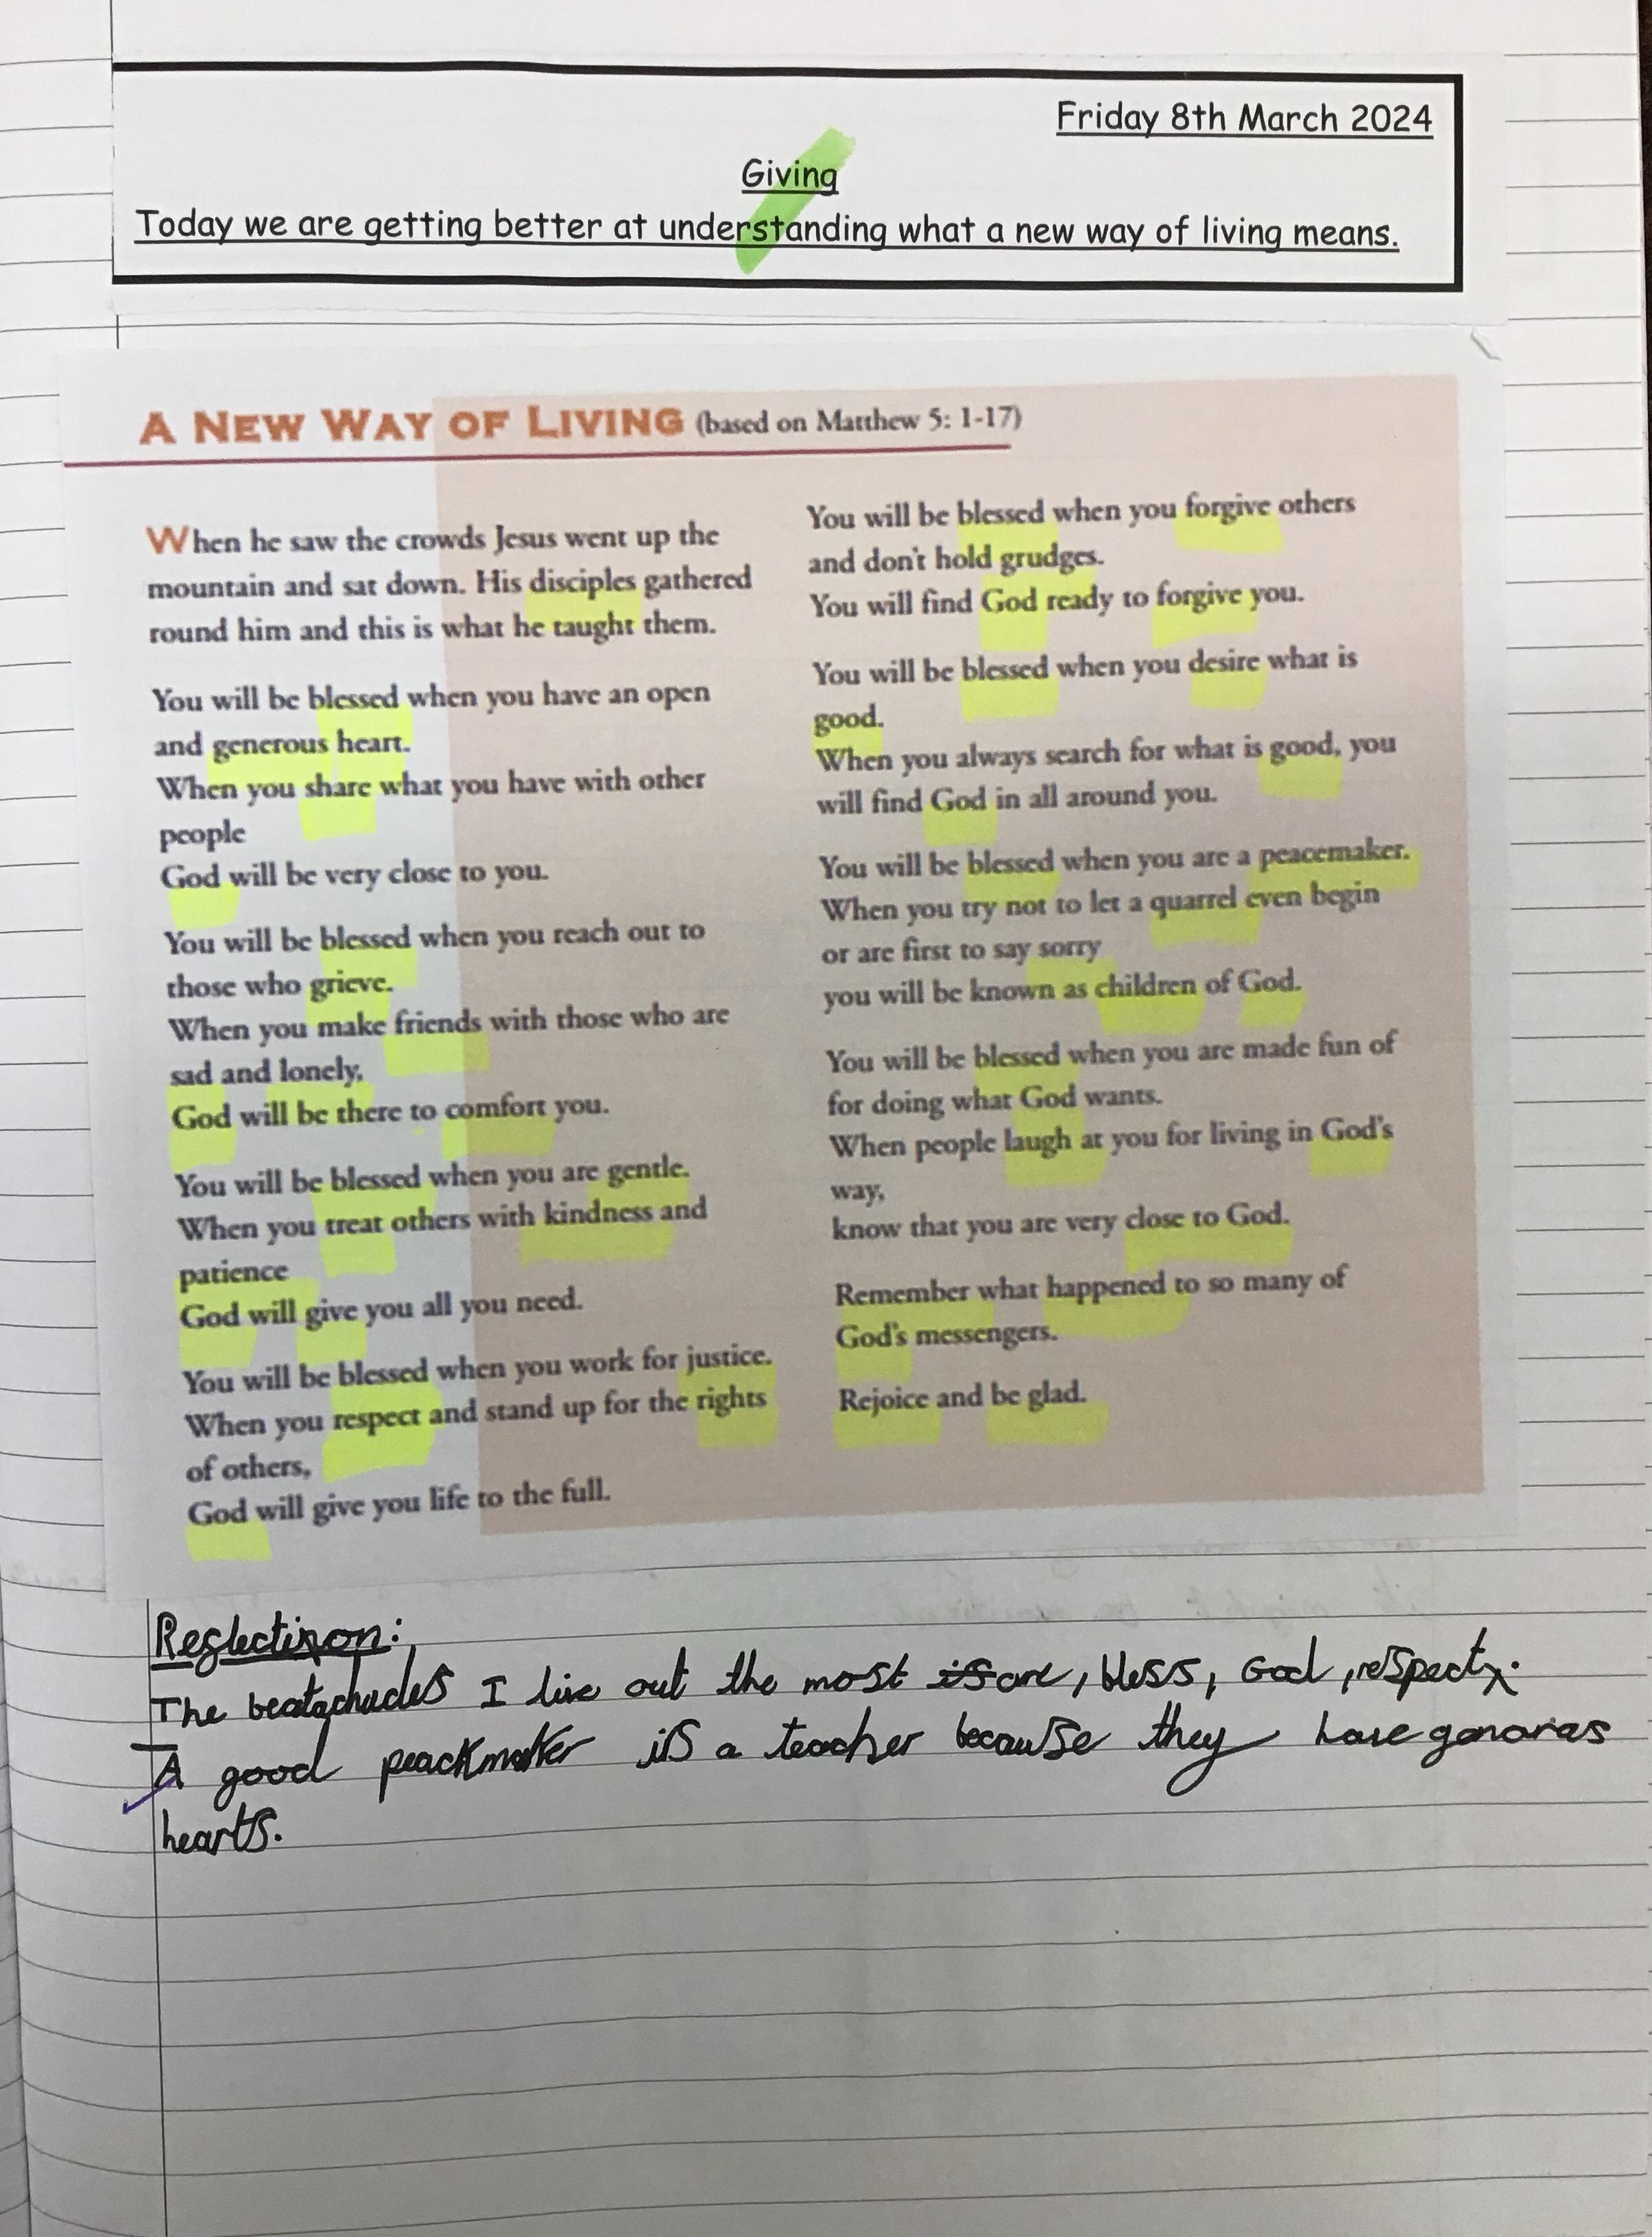 Friday 8th March 2024
Giving
Today we are getting better at understanding what a new way of living means.
A NEW WAY OF LIVING (based on Matthew 5: 1-17)
When he saw the crowds Jesus went up the
mountain and sat down. His disciples gathered
round him and this is what he taught them.
You will be blessed when you have an open
and generous heart.
When you share what you have with other
people
God will be very close to you.
You will be blessed when you reach out to
those who grieve.
When you make friends with those who are
sad and lonely,
God will be there to comfort you.
You will be blessed when you are gentle.
When you treat others with kindness and
patience
God will give you all you need.
You will be blessed when you work for justice.
When you respect and stand up for the rights
of others,
God will give you life to the full.
You will be blessed when you forgive others
and don't hold grudges.
You will find God ready to forgive you.
You will be blessed when you desire what is
good.
When you always search for what is good, you
will find God in all around you.
You will be blessed when you are a peacemaker.
When you try not to let a quarrel even begin
or are first to say sorry
you will be known as children of God.
You will be blessed when you are made fun of
for doing what God wants.
When people laugh at you for living in God's
way,
know that you are very close to God.
Remember what happened to so many of
God's messengers.
Rejoice and be glad.
The beatachudes I live out the most are, bless, God, respect.
A good peackmaker is a teacher because they have genoras
hearts.